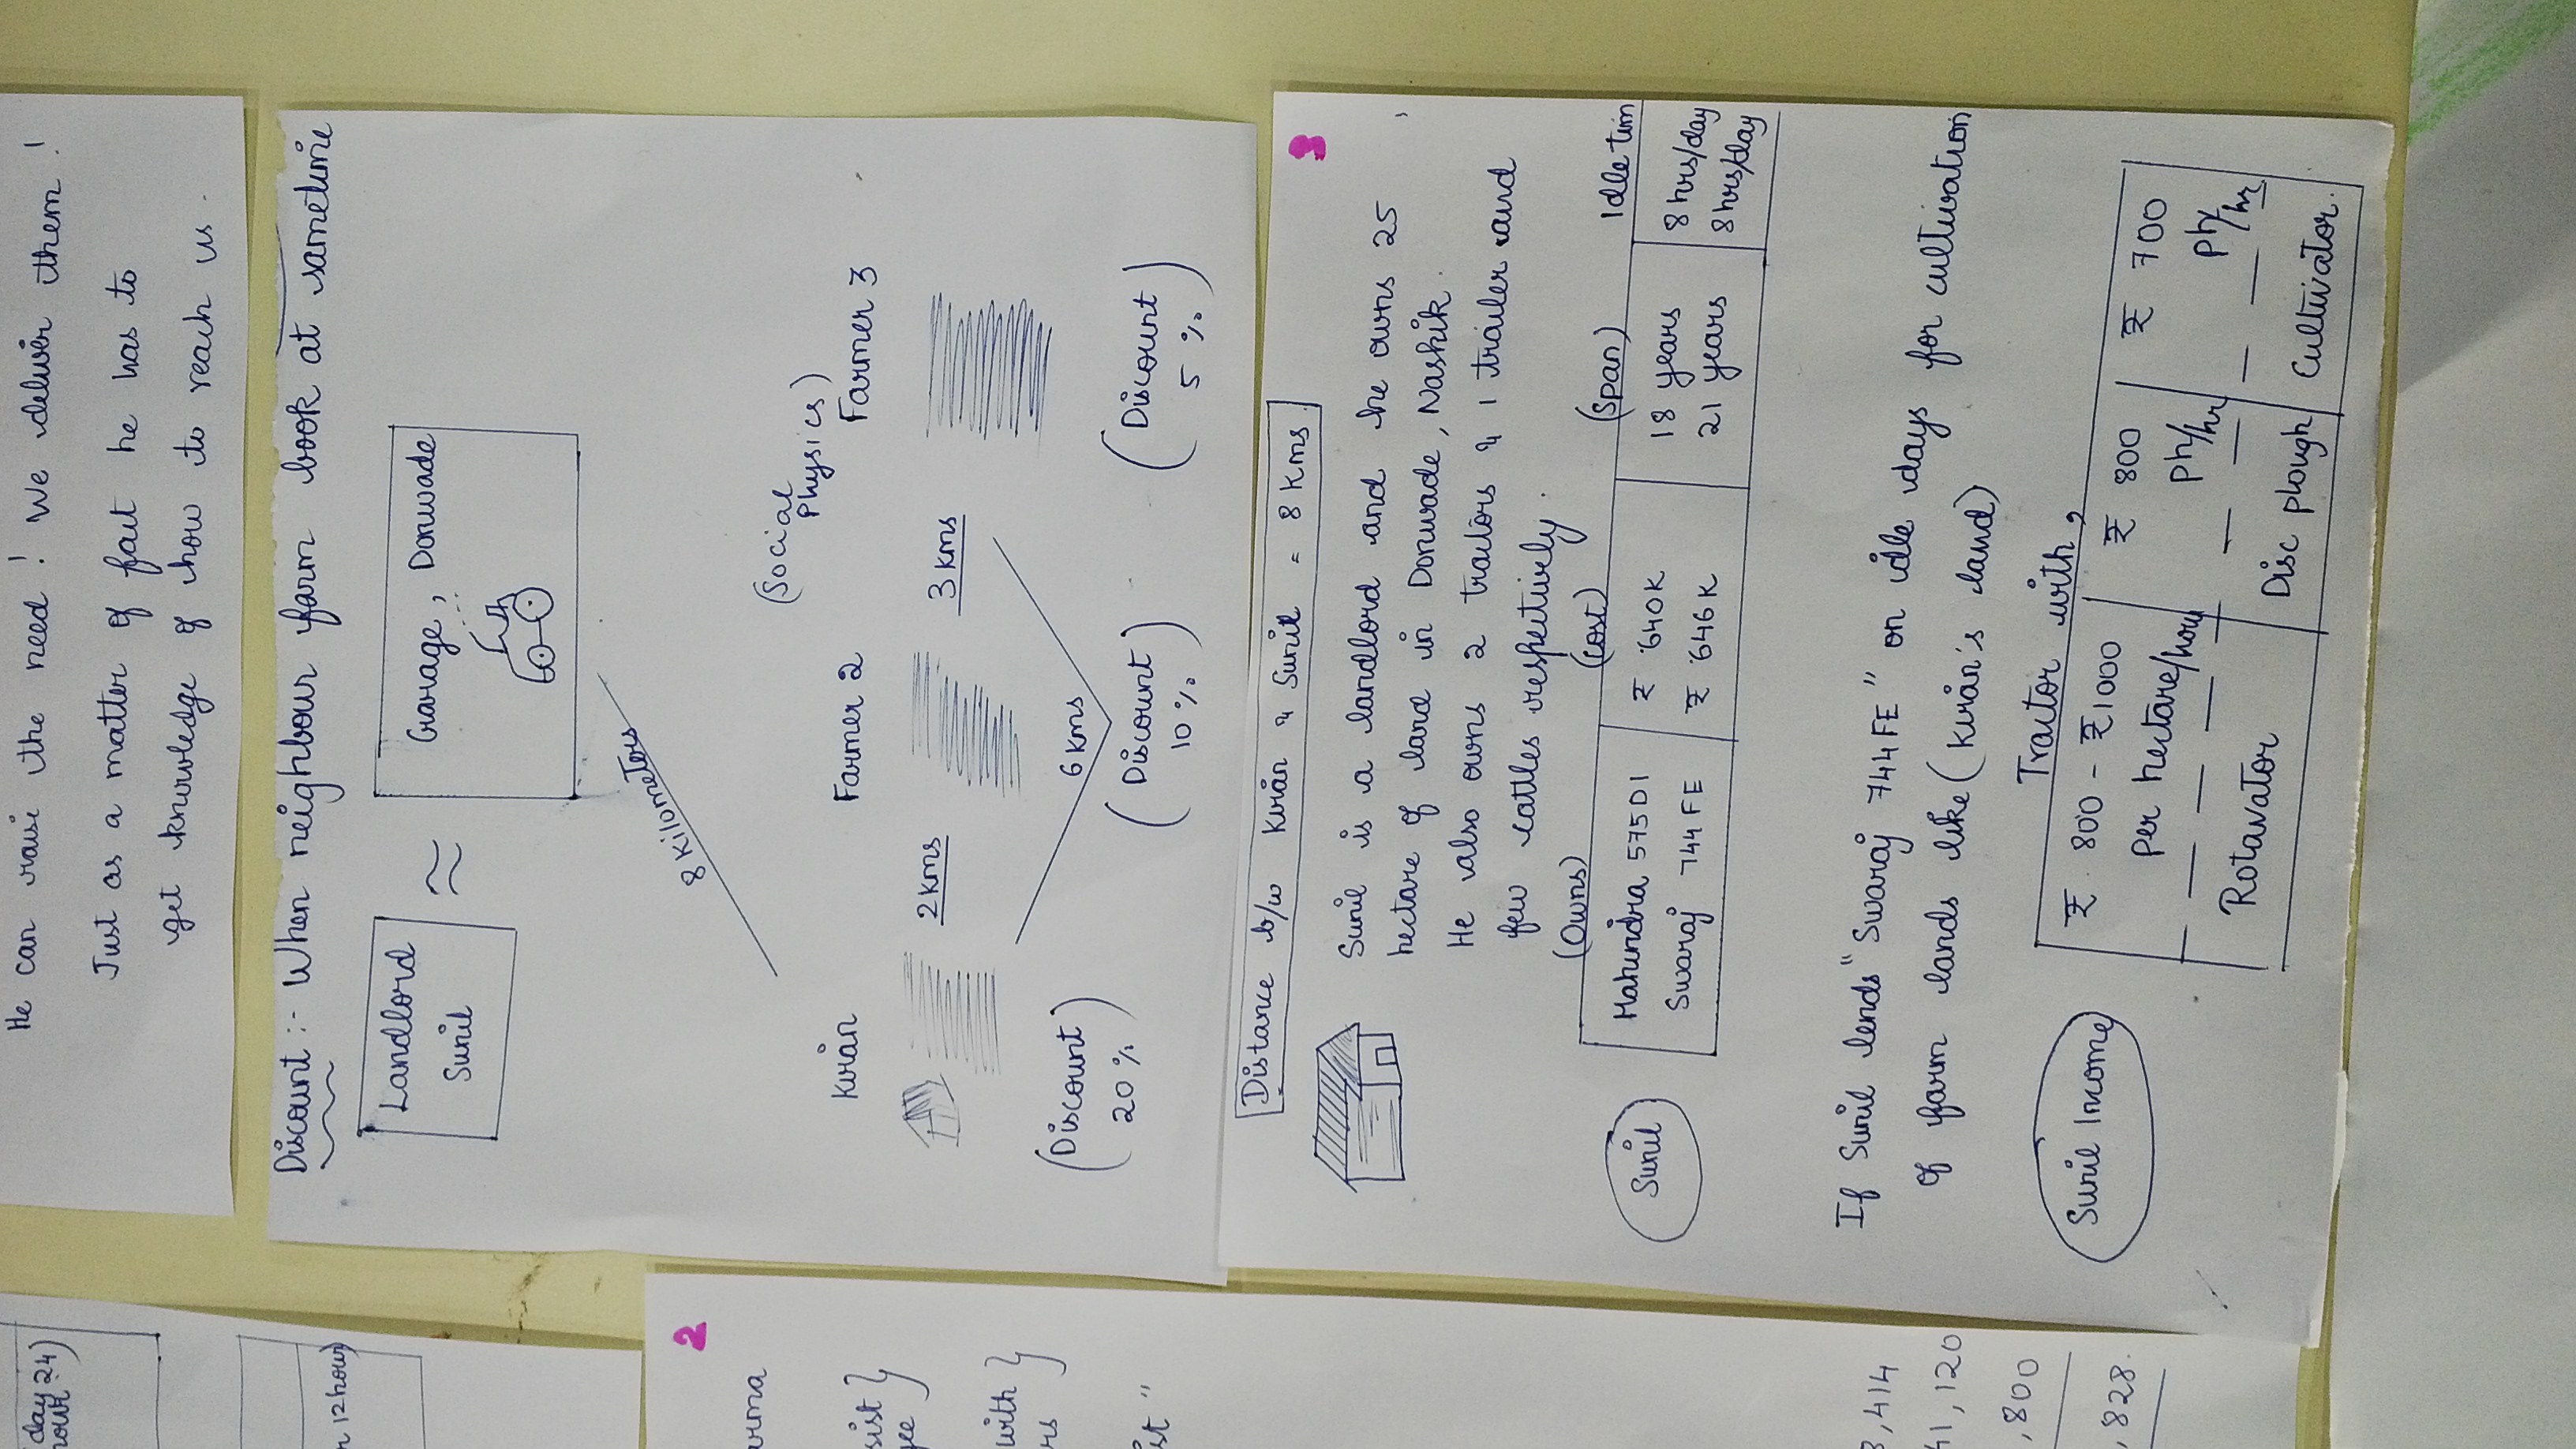 day 24)
hour
r 12 hour)
He can raise the need! We deliver them!
Just as a matter of fact he has to
get knowledge of how to reach us.
Discount :- When neighbour farm book at sametime
Landlord
Sunil
≈
Garage, Donwade
8 Kilometers
(Social
Physics)
Kiran
Farmer 2
Farmer 3
2 kms
3 kms
6 kms
(Discount
20 %)
(Discount
10 %)
(Discount
5 %)
2
with }
st "
3,414
41,120
,800
,828.
Distance b/w Kiran & Sunil = 8 Kms.
3
Sunil is a landlord and he owns 25
hectare of land in Donwade, Nashik.
He also owns 2 tractors & 1 trailer and
few cattles respectively.
(Owns) (cost) (Span) Idle tim
Sunil
Mahindra 575 DI ₹ 640K 18 years 8 hrs/day
Swaraj 744 FE ₹ 646K 21 years 8 hrs/day
If Sunil lends "Swaraj 744 FE" on idle days for cultivation
of farm lands like (Kiran's land)
Tractor with,
Sunil Income
₹ 800 - ₹1000 ₹ 800 ₹ 700
per hectare/hour ph/hr ph/hr
Rotavator Disc plough Cultivator.